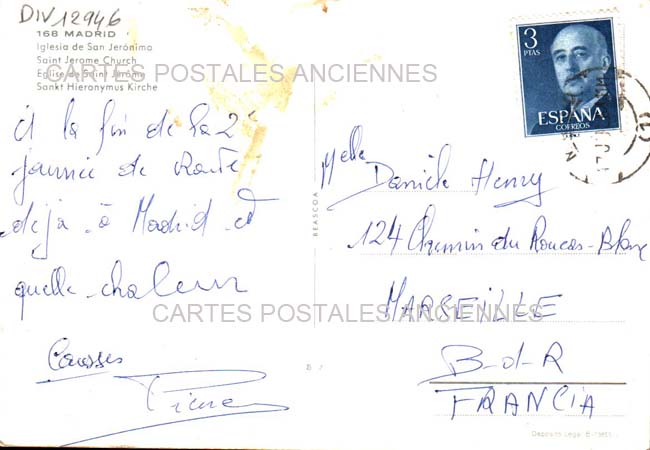 DIV12946
168 MADRID
Iglesia de San Jerónimo
Saint Jerome Church
Eglise de Saint Jerôme
Sankt Hieronymus Kirche
CARTES POSTALES ANCIENNES
A la fin de la 2e
journée de route
déjà à Madrid et
quelle chaleur
Pierre
BEASCOA
3
PTAS
ESPAÑA
CORREOS
(1)
Melle Danièle Henry
124 Chemin du Roucas-Blanc
MARSEILLE
CARTES POSTALES ANCIENNES
B-d-R
FRANCIA
Depósito Legal B-